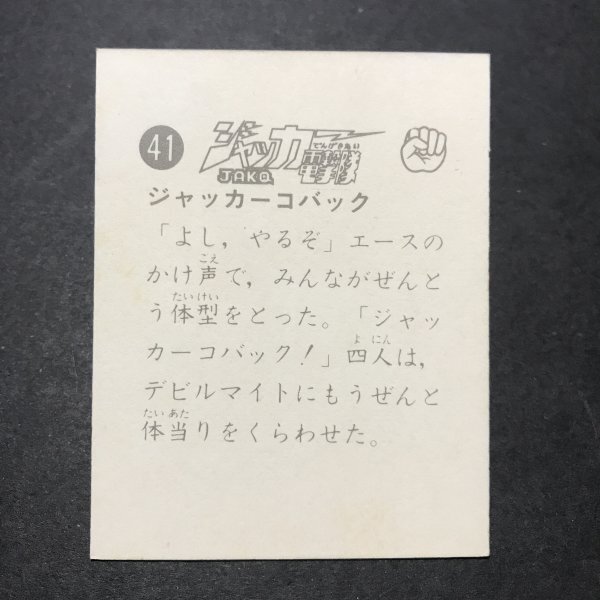 41
ジャッカー
でんげきたい
電撃隊
JAKQ
ジャッカーコバック
「よし，やるぞ」エースの
こえ
かけ声で，みんながぜんと
たいけい
う体型をとった。「ジャッ
よ にん
カーコバック！」四人は，
デビルマイトにもうぜんと
たいあた
体当りをくらわせた。